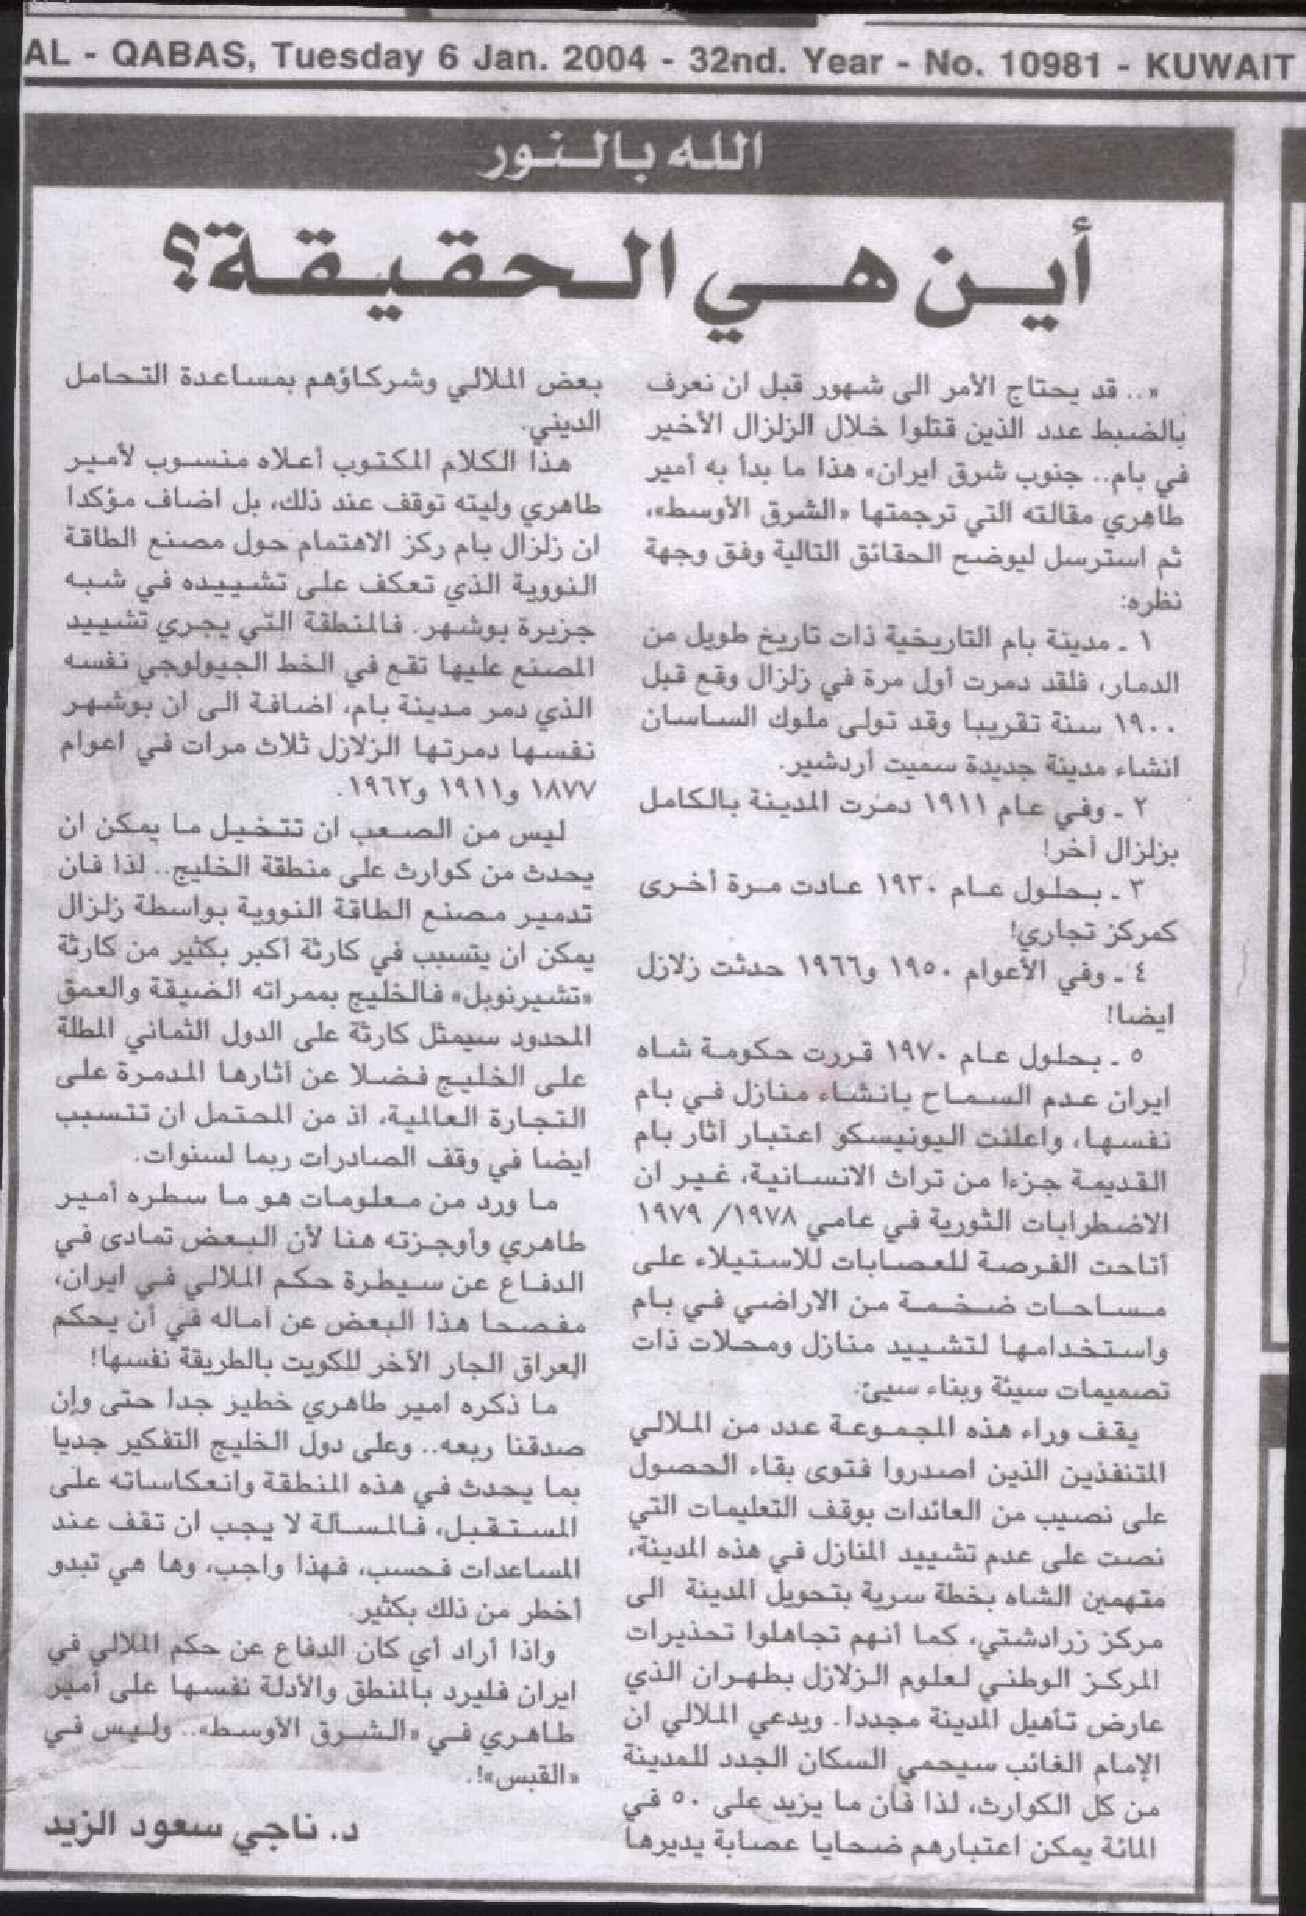 AL - QABAS, Tuesday 6 Jan. 2004 - 32nd. Year - No. 10981 - KUWAIT
الله بالنور
أين هي الحقيقة؟
«.. قد يحتاج الأمر الى شهور قبل ان نعرف
بالضبط عدد الذين قتلوا خلال الزلزال الأخير
في بام.. جنوب شرق ايران» هذا ما بدأ به أمير
طاهري مقالته التي ترجمتها «الشرق الأوسط»،
ثم استرسل ليوضح الحقائق التالية وفق وجهة
نظره:
١ ـ مدينة بام التاريخية ذات تاريخ طويل من
الدمار، فلقد دمرت أول مرة في زلزال وقع قبل
١٩٠٠ سنة تقريبا وقد تولى ملوك الساسان
انشاء مدينة جديدة سميت أردشير.
٢ ـ وفي عام ١٩١١ دمرت المدينة بالكامل
بزلزال أخر!
٣ ـ بحلول عام ١٩٣٠ عادت مرة أخرى
كمركز تجاري!
٤ ـ وفي الأعوام ١٩٥٠ و١٩٦٦ حدثت زلازل
ايضا!
٥ ـ بحلول عام ١٩٧٠ قررت حكومة شاه
ايران عدم السماح بانشاء منازل في بام
نفسها، واعلنت اليونيسكو اعتبار أثار بام
القديمة جزءا من تراث الانسانية، غير ان
الاضطرابات الثورية في عامي ١٩٧٨/ ١٩٧٩
أتاحت الفرصة للعصابات للاستيلاء على
مساحات ضخمة من الاراضي في بام
واستخدامها لتشييد منازل ومحلات ذات
تصميمات سيئة وبناء سيئ.
يقف وراء هذه المجموعة عدد من الملالي
المتنفذين الذين اصدروا فتوى بقاء الحصول
على نصيب من العائدات بوقف التعليمات التي
نصت على عدم تشييد المنازل في هذه المدينة،
متهمين الشاه بخطة سرية بتحويل المدينة الى
مركز زرادشتي، كما أنهم تجاهلوا تحذيرات
المركز الوطني لعلوم الزلازل بطهران الذي
عارض تأهيل المدينة مجددا. ويدعي الملالي ان
الإمام الغائب سيحمي السكان الجدد للمدينة
من كل الكوارث، لذا فأن ما يزيد على ٥٠ في
المائة يمكن اعتبارهم ضحايا عصابة يديرها
بعض الملالي وشركاؤهم بمساعدة التحامل
الديني.
هذا الكلام المكتوب أعلاه منسوب لأمير
طاهري وليته توقف عند ذلك، بل اضاف مؤكدا
ان زلزال بام ركز الاهتمام حول مصنع الطاقة
النووية الذي تعكف على تشييده في شبه
جزيرة بوشهر. فالمنطقة التي يجري تشييد
المصنع عليها تقع في الخط الجيولوجي نفسه
الذي دمر مدينة بام، اضافة الى ان بوشهر
نفسها دمرتها الزلازل ثلاث مرات في اعوام
١٨٧٧ و١٩١١ و١٩٦٢.
ليس من الصعب ان تتخيل ما يمكن ان
يحدث من كوارث على منطقة الخليج.. لذا فان
تدمير مصنع الطاقة النووية بواسطة زلزال
يمكن ان يتسبب في كارثة أكبر بكثير من كارثة
«تشيرنوبل» فالخليج بممراته الضيقة والعمق
المحدود سيمثل كارثة على الدول الثماني المطلة
على الخليج فضلا عن أثارها المدمرة على
التجارة العالمية، اذ من المحتمل ان تتسبب
ايضا في وقف الصادرات ربما لسنوات.
ما ورد من معلومات هو ما سطره أمير
طاهري وأوجزته هنا لأن البعض تمادى في
الدفاع عن سيطرة حكم الملالي في ايران،
مفصحا هذا البعض عن أماله في أن يحكم
العراق الجار الأخر للكويت بالطريقة نفسها!
ما ذكره امير طاهري خطير جدا حتى وإن
صدقنا ربعه.. وعلى دول الخليج التفكير جديا
بما يحدث في هذه المنطقة وانعكاساته على
المستقبل، فالمسألة لا يجب ان تقف عند
المساعدات فحسب، فهذا واجب، وها هي تبدو
أخطر من ذلك بكثير.
واذا أراد أي كان الدفاع عن حكم الملالي في
ايران فليرد بالمنطق والأدلة نفسها على أمير
طاهري في «الشرق الأوسط».. وليس في
«القبس»!.
د. ناجي سعود الزيد